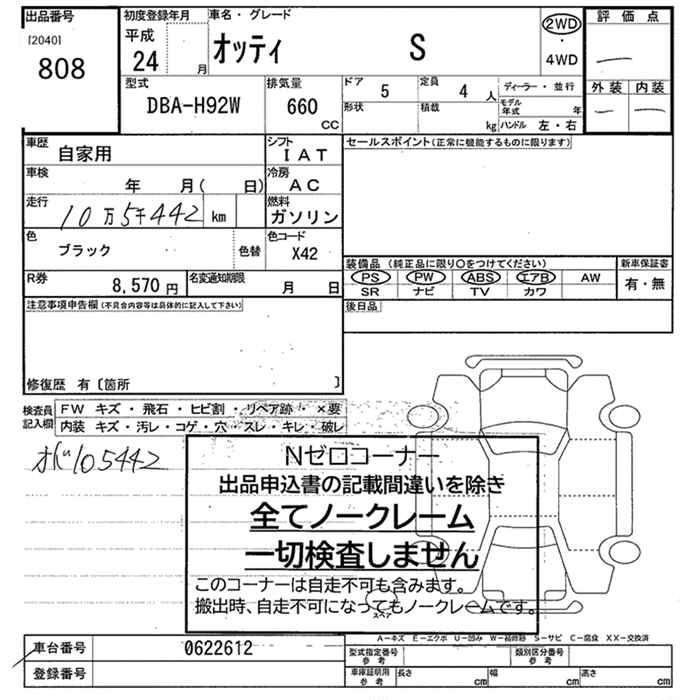 出品番号
[2040]
808
初度登録年月
平成
24 月
車名・グレード
オッティ S
2WD
・
4WD
評価点
一
外装 内装
一 一
型式
DBA-H92W
排気量
660
CC
ドア 5
定員 4 人
ディーラー・並行
形状
積載 kg
モデル年式 年
ハンドル 左・右
車歴
自家用
シフト
IAT
車検
年 月( 日)
冷房
AC
走行
10万5千442 km
燃料
ガソリン
色
ブラック
色替
色コード
X42
R券
8,570 円
名変通知期限
月 日
セールスポイント(正常に機能するものに限ります)
装備品(純正品に限り〇をつけてください)
新車保証書
PS PW ABS エアB AW
SR ナビ TV カワ
有・無
後日品
注意事項申告欄(不具合内容等は具体的に記入して下さい)
修復歴 有〔箇所 〕
検査員
記入欄
FW キズ・飛石・ヒビ割・リペア跡・×要
内装 キズ・汚レ・コゲ・穴・スレ・キレ・破レ
オドル105442
Nゼロコーナー
出品申込書の記載間違いを除き
全てノークレーム
一切検査しません
このコーナーは自走不可も含みます。
搬出時、自走不可になってもノークレームです。
スペア
A－キズ E－エクボ U－凹み W－補修跡 S－サビ C－腐食 XX－交換済
車台番号
0622612
登録番号
型式指定番号
参考
類別区分番号
参考
車庫証明用
参考
長さ cm
幅 cm
高さ cm